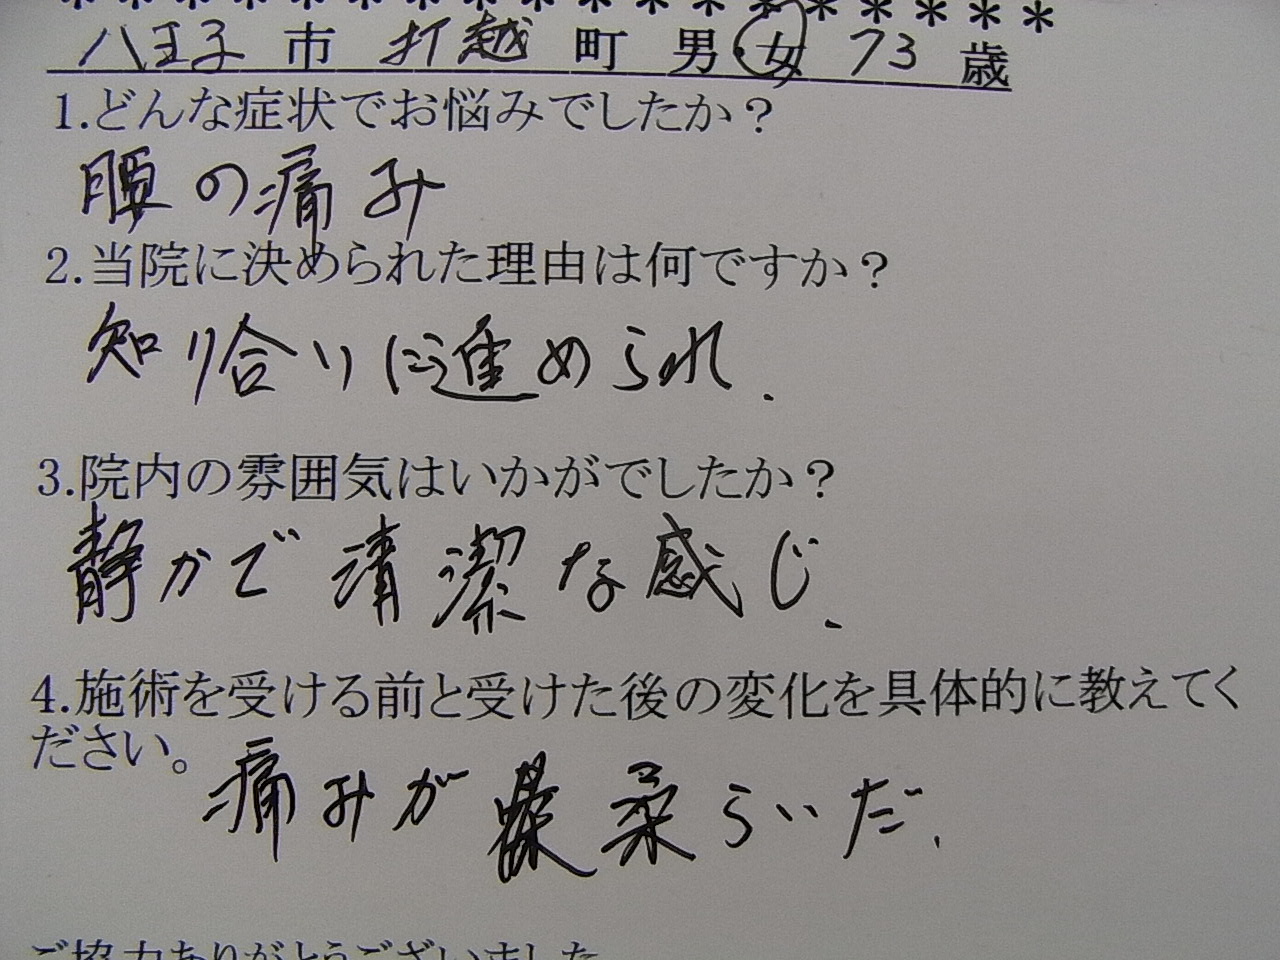 ＊＊＊＊＊＊＊＊＊＊＊＊＊＊＊＊＊＊
八王子 市 打越 町 男・女 73 歳
1.どんな症状でお悩みでしたか？
腰の痛み
2.当院に決められた理由は何ですか？
知り合いに進められ.
3.院内の雰囲気はいかがでしたか？
静かで清潔な感じ.
4.施術を受ける前と受けた後の変化を具体的に教えてく
ださい。
痛みが柔らいだ.
ご協力ありがとうございました